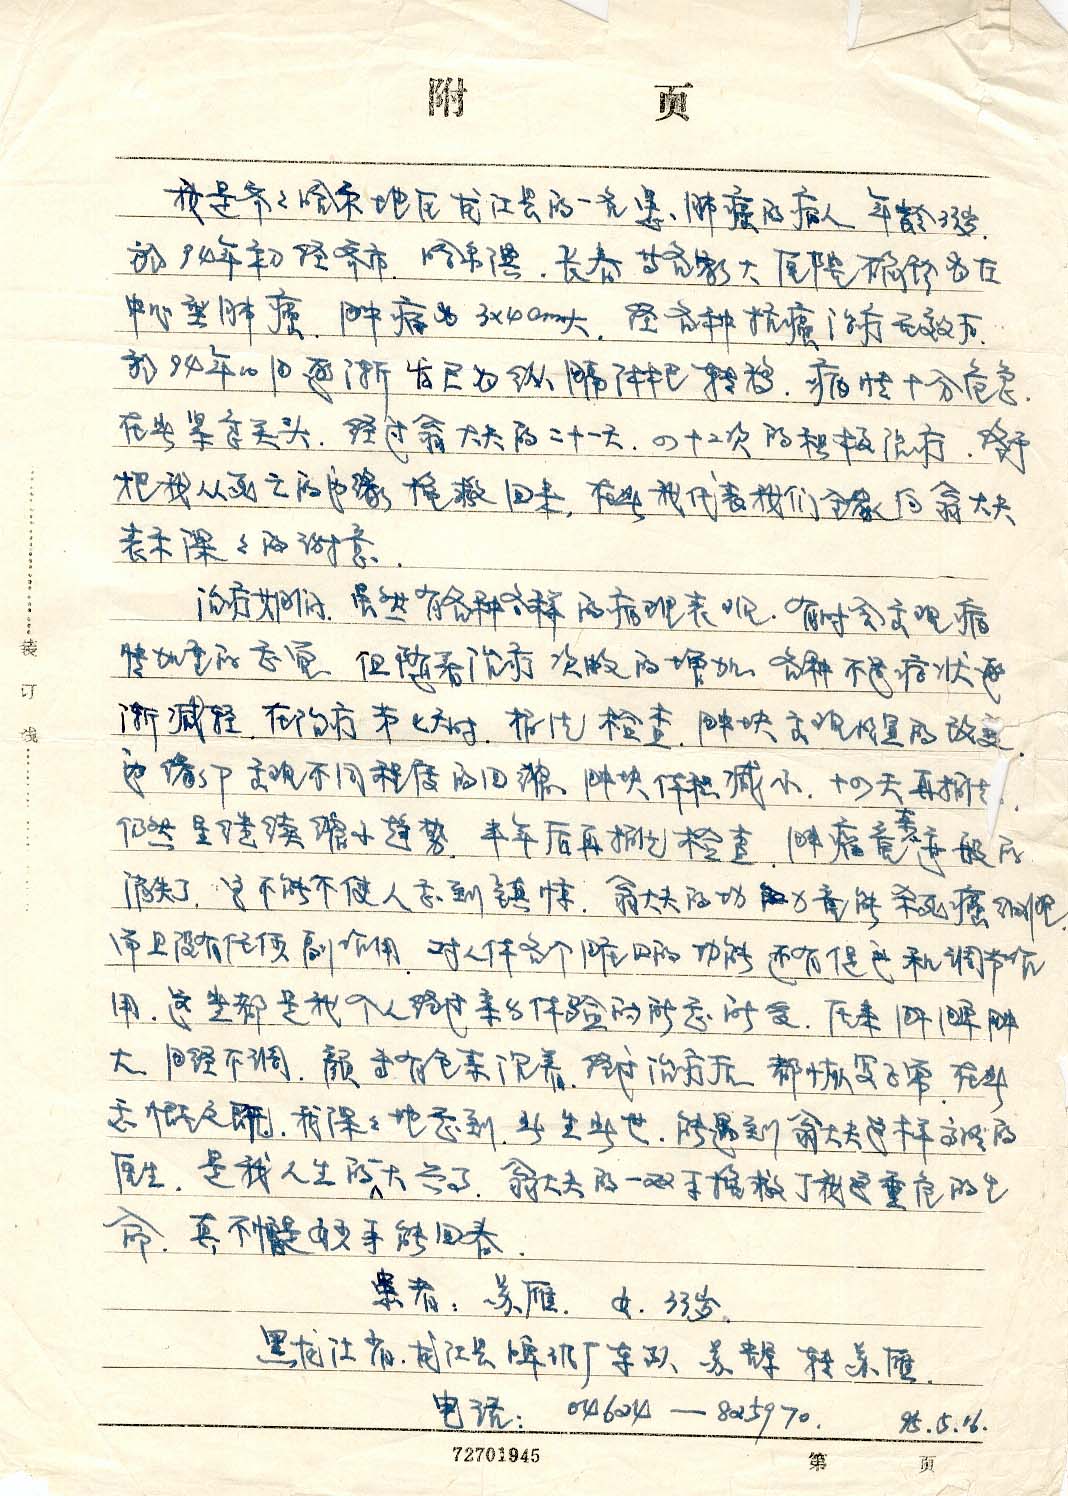 附 页
我是齐々哈尔地区龙江县的一名患、肺癌的病人 年龄33岁.
於94年初经齐市. 哈尔滨. 长春 等各家大医院确诊为左
中心型肺癌. 肿瘤为 3x4cm大. 经各种抗癌治疗无效后.
於94年10月逐渐发展为纵膈淋巴转移. 病情十分危急.
在此紧要关头. 经过翁大夫的二十一天. 四十二次的积极治疗. 终于
把我从死亡的边缘 抢救回来, 在此我代表我们全家向翁大夫
表示深々的谢意.
治疗期间. 虽然有各种各样的病理表现. 有时会出现病
情加重的感觉 但随着治疗次数的增加. 各种不适症状逐
渐减轻. 在治疗第七天时. 拍片检查. 肿块出现明显的改变.
边缘部出现不同程度的回缩. 肿块体积减小. 十四天再拍片.
仍然呈继续缩小趋势. 半年后再拍片检查. 肿瘤竟奇迹般的
消失了. 这不能不使人感到震惊. 翁大夫的功力竟能杀死癌细胞.
而且没有任何副作用. 对人体各个脏器的功能还有促进和调节作
用. 这些都是我个人经过亲身体验的所感所受. 原来肝脾肿
大. 月经不调. 颜面有色素沉着. 经过治疗后 都恢复正常. 在此
感慨之际. 我深々地感到. 此生此世. 能遇到翁大夫这样高明的
医生. 是我人生的大幸了. 翁大夫的一双手抢救了我这垂危的生
命. 真不愧是妙手能回春.
患者: 苏雁. 女. 33岁.
黑龙江省. 龙江县啤酒厂车队 苏 转苏雁.
电话: 046024—8025970. 95.5.16.
装订线
72701945
第 页